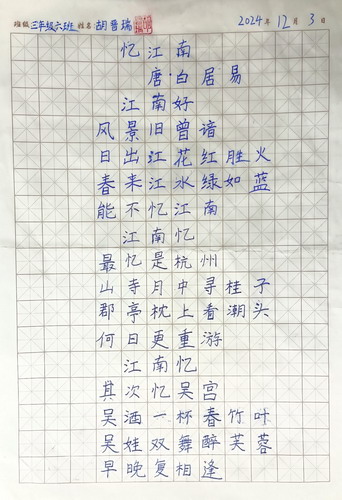 班级 三年级六班 姓名 胡晋瑞 2024年 12月 3日
忆江南
唐·白居易
江南好
风景旧曾谙
日出江花红胜火
春来江水绿如蓝
能不忆江南
江南忆
最忆是杭州
山寺月中寻桂子
郡亭枕上看潮头
何日更重游
江南忆
其次忆吴宫
吴酒一杯春竹叶
吴娃双舞醉芙蓉
早晚复相逢